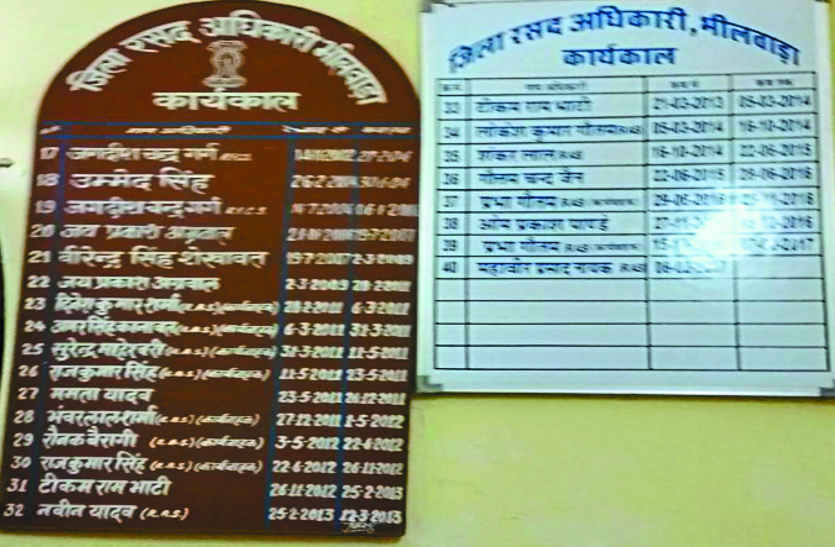 जिला रसद अधिकारी भीलवाड़ा
कार्यकाल
नाम अधिकारी
17 जगदीश चन्द्र गर्ग
18 उम्मेद सिंह 26-2-2004
19 जगदीश चन्द्र गर्ग R.T.C.S.
20 जय प्रकाश अग्रवाल
21 वीरेन्द्र सिंह शेखावत 19-7-2007 2-3-2009
22 जय प्रकाश अग्रवाल 2-3-2009 28-2-2011
23 दिनेश कुमार शर्मा (R.A.S.) (कार्यवाहक) 28-2-2011 6-3-2011
24 अमर सिंह कानावत (R.A.S.) (कार्यवाहक) 6-3-2011 31-3-2011
25 सुरेन्द्र माहेश्वरी (R.A.S.) (कार्यवाहक) 31-3-2011 11-5-2011
26 राजकुमार सिंह (R.A.S.) (कार्यवाहक) 11-5-2011 23-5-2011
27 ममता यादव 23-5-2011 26-12-2011
28 भंवरलाल शर्मा (R.A.S.) (कार्यवाहक) 27-12-2011 1-5-2012
29 रौनक बैरागी (R.A.S.) (कार्यवाहक) 3-5-2012 22-6-2012
30 राजकुमार सिंह (R.A.S.) (कार्यवाहक) 22-6-2012 26-11-2012
31 टीकम राम भाटी 26-11-2012 25-2-2013
32 नवीन यादव (R.A.S.) 25-2-2013 12-3-2013
जिला रसद अधिकारी, भीलवाड़ा
कार्यकाल
नाम अधिकारी
33 टीकम राम भाटी 21-03-2013 05-03-2014
34 लोकेश कुमार गौतम (RAS) 05-03-2014 16-10-2014
35 शंकर लाल (RAS) 16-10-2014 22-06-2015
36 गौतम चन्द जैन 22-06-2015 28-06-2016
37 प्रभा गौतम (RAS) (कार्यवाहक) 29-06-2016
38 ओम प्रकाश पारदे
39 प्रभा गौतम (RAS) (कार्यवाहक)
40 महावीर प्रसाद नायक (RAS)